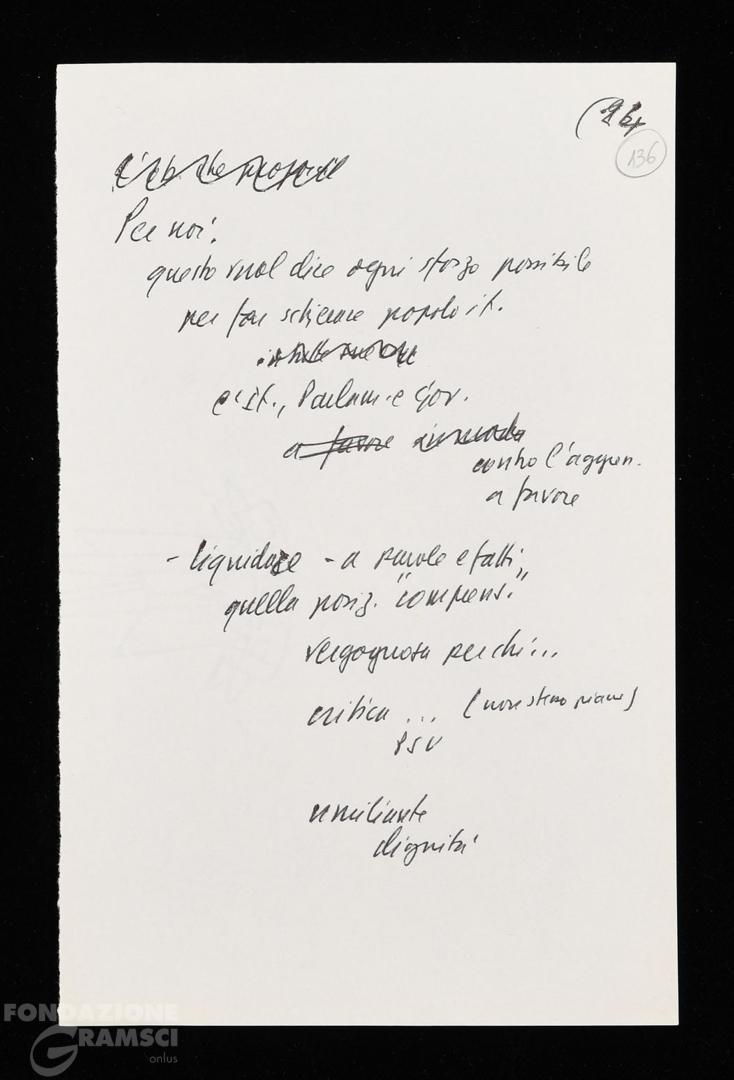 136
Per noi:
questo vuol dire ogni sforzo possibile
per far schierare popolo it.
e It., Parlam. e Gov.
a favore
contro l'aggress.
a favore
- liquidare - a parole e fatti,
quella posiz. "comprens."
vergognosa perché...
critica ... (non stesso piano)
PSU
umiliante
dignità
FONDAZIONE
GRAMSCI
onlus